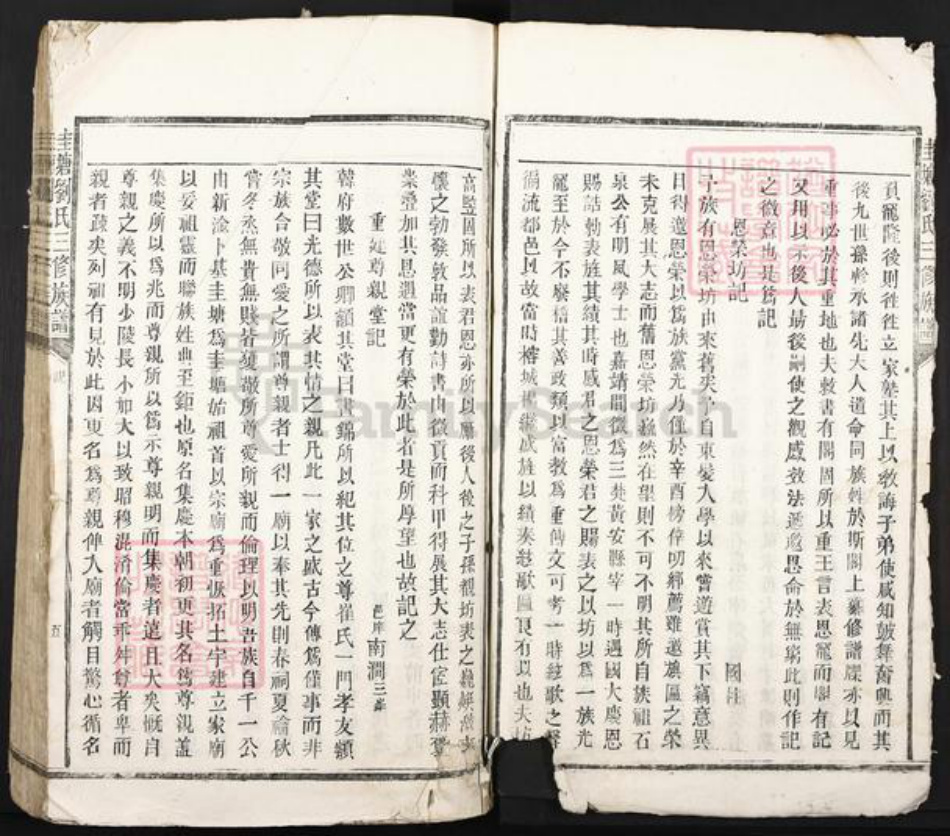 貢寵隆後則往往立家塾其上以敎誨子弟使咸知皷舞奮興而其
後九世孫幹承諸先大人遺命同族姓於斯閣上纂修譜牒亦以見
重事必於其重地也夫敕書有閣固所以重王言表恩寵而閣有記
又用以示後人最後嗣使之觀感效法遞邀恩命於無窮此則作記
之微意也是爲記
恩榮坊記
國柱
予族有恩榮坊由來舊矣予自束髮入學以來嘗遊賞其下竊意異
日得邀恩榮以爲族黨光乃僅於辛酉榜倖叨鄉薦雖邀旗匾之榮
未克展其大志而舊恩榮坊巍然在望則不可不明其所自族祖石
泉公有明風學士也嘉靖間徵爲三芙黃安縣宰一時遇國大慶恩
賜誥勅表旌其績其時感君之恩榮君之賜表之以坊以爲一族光
寵至於今不廢稽其善政類以富敎爲重傳文可考一時絃歌之聲
徧流都邑以故當時
以績來慰歌匾良有以也夫坊
高豎固所以表君恩亦所以勵後人後之子孫覩坊表之巍
懷之勃發敦品誼勤詩書由徵貢而科甲得展其大志仕宦顯赫
業澄加其恩遇當更有榮於此者是所厚望也故記之
重建尊親堂記
邑庠 南澗三
韓府數世公卿額其堂曰晝錦所以紀其位之尊崔氏一門孝友額
其堂曰光德所以表其情之親凡此一家之盛古今傳爲僅事而非
宗族合敬同愛之所謂尊親者士得一廟以奉其先則春祠夏禴秋
嘗冬烝無貴無賤皆須敬所尊愛所親而倫理以明吾族自千一公
由新淦卜基圭塘爲圭塘始祖首以宗廟爲重恢拓土宇建立家廟
以妥祖靈而聯族姓典至鉅也原名集慶本朝初更其名爲尊親蓋
集慶所以爲兆而尊親所以爲示尊親明而集慶者遠且大矣慨自
尊親之義不明少陵長小加大以致昭穆混淆倫當乖舛尊者卑而
親者疎矣列祖有見於此因更名爲尊親俾入廟者觸目驚心循名
圭塘劉氏三修族譜
記
五
FamilySearch